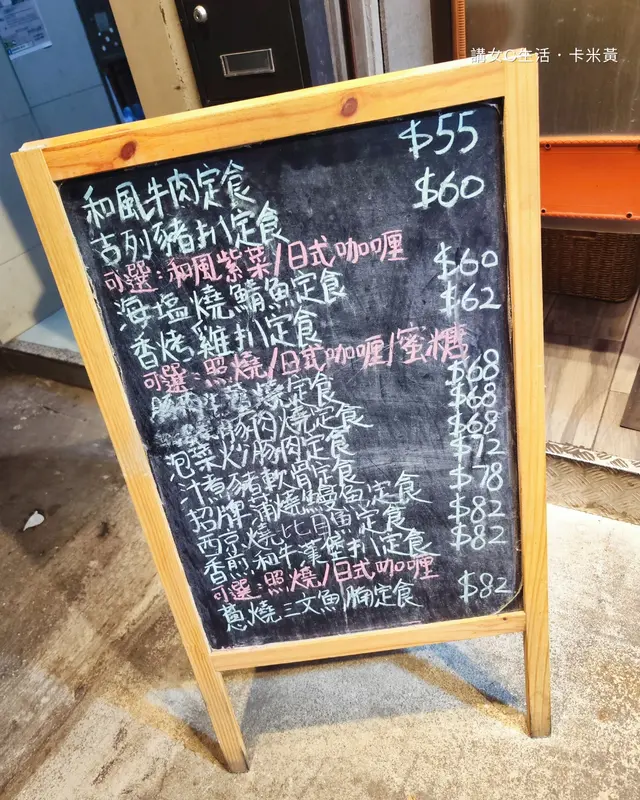 講女G生活・卡米黃
和風牛肉定食 $55
吉列豬扒定食 $60
可選:和風紫菜/日式咖喱
海塩燒鯖魚定食 $60
香烤雞扒定食 $62
可選:照燒/日式咖喱/蜜糖
燒定食 $68
豚肉燒定食 $68
泡菜炒豚肉定食 $68
汁煮豬軟骨定食 $72
招牌蒲燒鰻魚定食 $78
西京燒比目魚定食 $82
香煎和牛漢堡扒定食 $82
可選:照燒/日式咖喱
蔥燒三文魚腩定食 $82